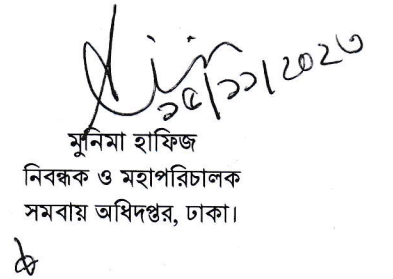 ২৫/১১/২০২৩
মুনিমা হাফিজ
নিবন্ধক ও মহাপরিচালক
সমবায় অধিদপ্তর, ঢাকা।